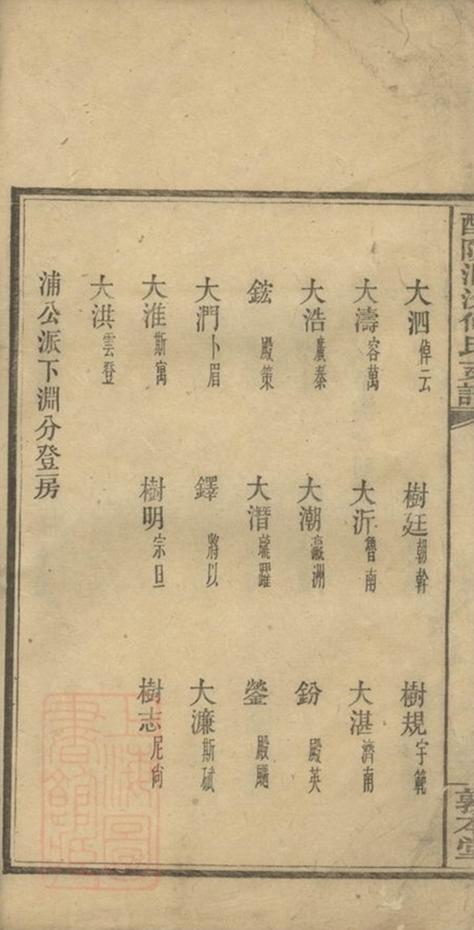 大泗倬云 樹廷朝幹 樹規宇範
大濤容萬 大沂魯南 大湛濟南
大浩廣秦 大潮瀛洲 鈖殿英
鋐殿策 大潛毓躍 鎣殿颺
大門卜眉 鐸將以 大濂斯斌
大淮斯寓 樹明宗旦 樹志尼尚
大洪雲登
浦公派下淵分登房
敦本堂